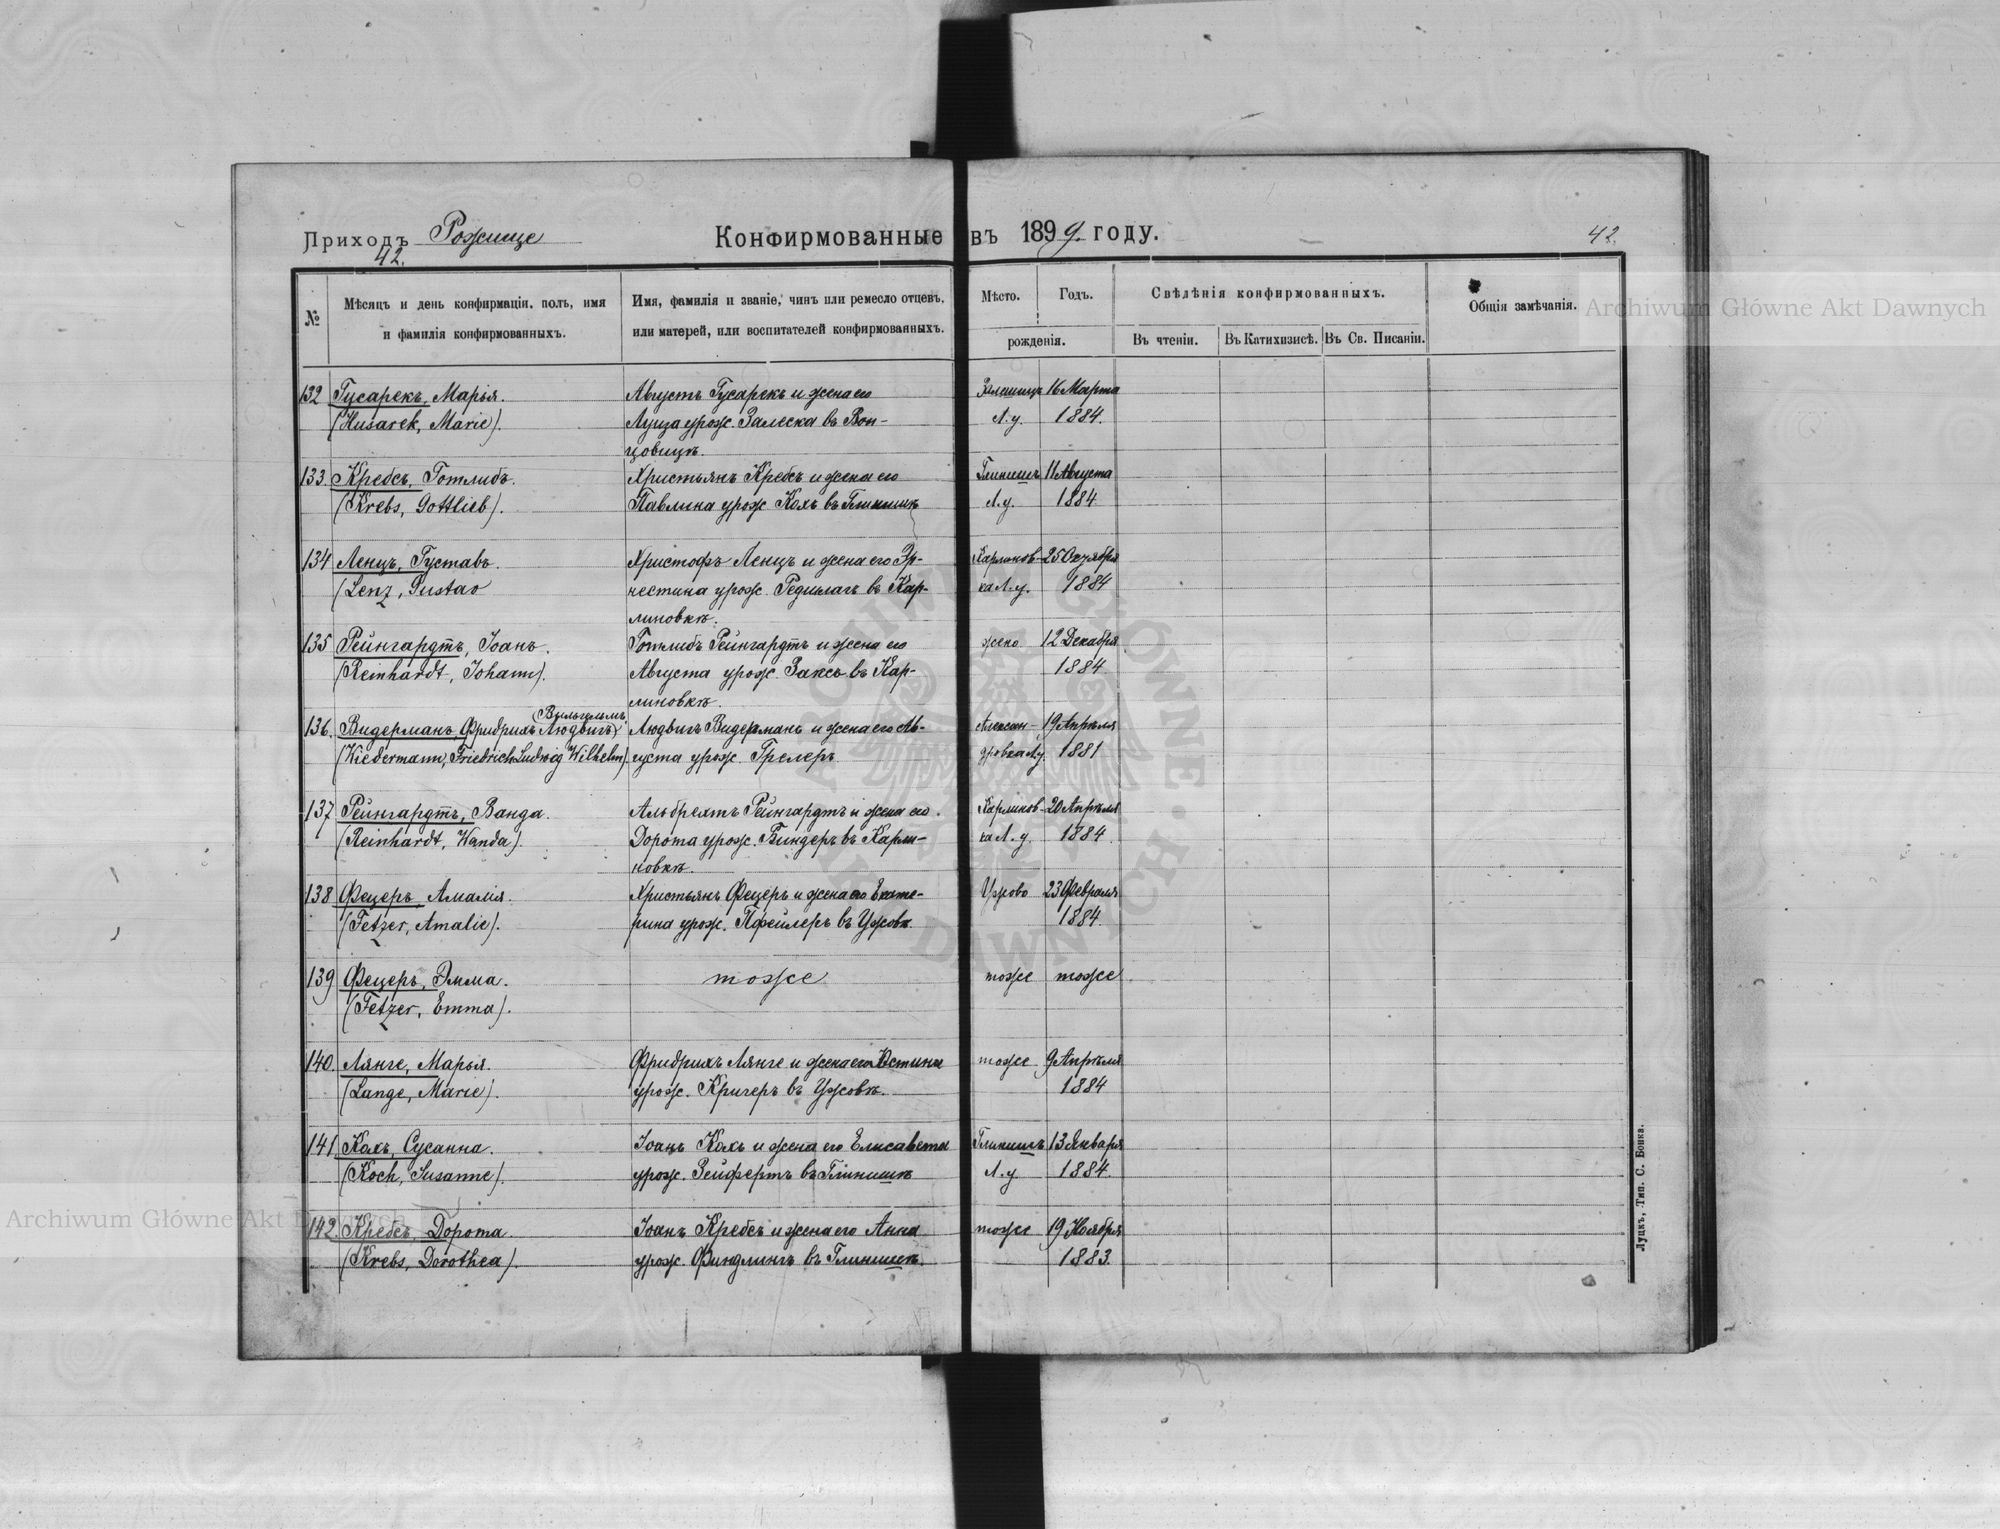 Приходъ Рожище
42.
Конфирмованные въ 1899. году.
42.
№
Мѣсяцъ и день конфирмаціи, полъ, имя
и фамилія конфирмованныхъ.
Имя, фамилія и званіе, чинъ или ремесло отцевъ,
или матерей, или воспитателей конфирмованныхъ.
Мѣсто.
Годъ.
рожденія.
Свѣдѣнія конфирмованныхъ.
Въ чтеніи.
Въ Катихизисѣ.
Въ Св. Писаніи.
Общія замѣчанія.
Archiwum Główne Akt Dawnych
132 Гусарекъ, Марья. Августъ Гусарекъ и жена его 16 Марта
(Husarek, Marie). Луиза урож. Залеска въ Вон- Л.у. 1884.
цовицѣ.
133. Кребсъ, Готлибъ. Христьянъ Кребсъ и жена его Глинишъ 11 Августа
(Krebs, Gottlieb). Павлина урож. Кохъ въ Глинишѣ Л.у. 1884.
134 Ленцъ, Густавъ. Христофъ Ленцъ и жена его Эр- Карлинов- 25 Октября
(Lenz, Gustav нестина урож. въ Кар- ка Л.у. 1884
линовкѣ.
135 Рейнгардтъ, Іоанъ. Готлибъ Рейнгардтъ и жена его 12 Декабря
(Reinhardt, Johann). Августа урож. Заксъ въ Кар- 1884.
линовкѣ.
Вильгельмъ
136. Видерманъ, Фридрихъ Людвигъ Людвигъ Видерманъ и жена его Ав- Алексан- 19 Апрѣля
(Wiedermann, Friedrich Ludwig Wilhelm). густа урож. Грелеръ дровка Л.у. 1881
137 Рейнгардтъ, Ванда. Альбрехтъ Рейнгардтъ и жена его Карлинов- 20 Апрѣля
(Reinhardt, Wanda). Дорота урож. Биндеръ въ Карли- ка Л.у. 1884.
новкѣ.
138 Фецеръ Амалія. Христьянъ Фецеръ и жена его Екате- Ужово 23 Февраля
(Fetzer, Amalie). рина урож. Пфейлеръ въ Ужовѣ. 1884.
139 Фецеръ, Эмма. тоже тоже тоже
(Fetzer, Emma).
140. Лянге, Марья. Фридрихъ Лянге и жена его Юстина тоже 9 Апрѣля
(Lange, Marie). урож. Кригеръ въ Ужовѣ. 1884
141 Кохъ, Сусанна. Іоанъ Кохъ и жена его Елисавета Глинишъ 13 Января
(Koch, Susanne). урож. Зейфертъ въ Глинишѣ Л.у. 1884.
142. Кребсъ, Дорота. Іоанъ Кребсъ и жена его Анна тоже 19 Ноября
(Krebs, Dorothea). урож. Финдлингъ въ Глинишѣ. 1883.
Луцкъ, Тип. С. Бонка.
Archiwum Główne Akt Dawnych